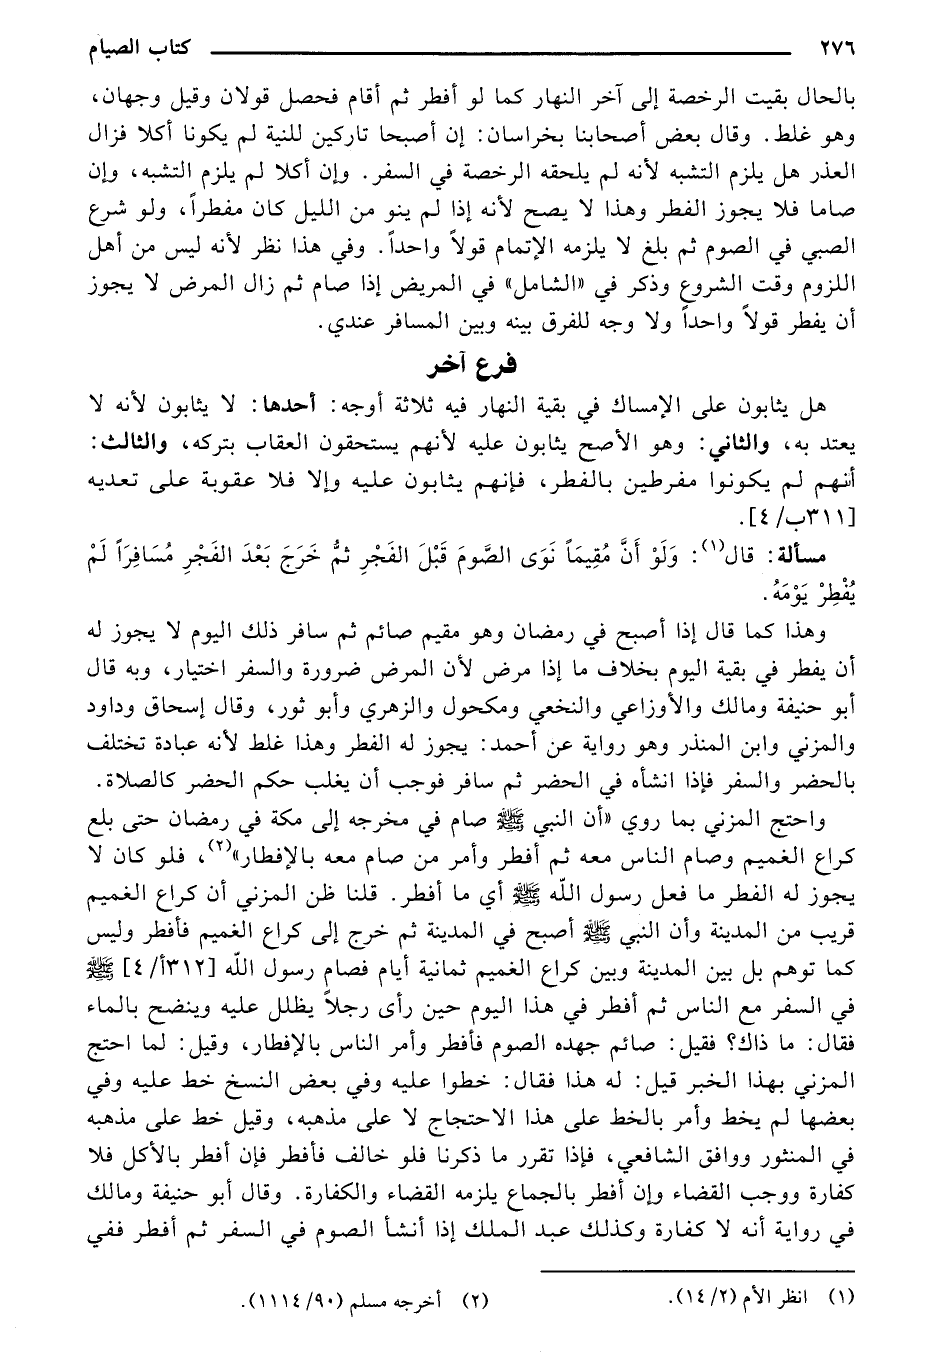 ٢٧٦ كتاب الصيام
بالحال بقيت الرخصة إلى آخر النهار كما لو أفطر ثم أقام فحصل قولان وقيل وجهان،
وهو غلط. وقال بعض أصحابنا بخراسان: إن أصبحا تاركين للنية لم يكونا أكلا فزال
العذر هل يلزم التشبه لأنه لم يلحقه الرخصة في السفر. وإن أكلا لم يلزم التشبه، وإن
صاما فلا يجوز الفطر وهذا لا يصح لأنه إذا لم ينو من الليل كان مفطراً، ولو شرع
الصبي في الصوم ثم بلغ لا يلزمه الإتمام قولاً واحداً. وفي هذا نظر لأنه ليس من أهل
اللزوم وقت الشروع وذكر في «الشامل» في المريض إذا صام ثم زال المرض لا يجوز
أن يفطر قولاً واحداً ولا وجه للفرق بينه وبين المسافر عندي.
فرع آخر
هل يثابون على الإمساك في بقية النهار فيه ثلاثة أوجه: أحدها: لا يثابون لأنه لا
يعتد به، والثاني: وهو الأصح يثابون عليه لأنهم يستحقون العقاب بتركه، والثالث:
أنهم لم يكونوا مفرطين بالفطر، فإنهم يثابون عليه وإلا فلا عقوبة على تعديه
[٣١١ب/ ٤].
مسألة: قال(١): وَلَوْ أَنَّ مُقِيمَاً نَوَى الصَّومَ قَبْلَ الفَجْرِ ثمَُّ خَرَجَ بَعْدَ الفَجْرِ مُسَافِرَاً لَمْ
يُفْطِرْ يَوْمَهُ.
وهذا كما قال إذا أصبح في رمضان وهو مقيم صائم ثم سافر ذلك اليوم لا يجوز له
أن يفطر في بقية اليوم بخلاف ما إذا مرض لأن المرض ضرورة والسفر اختيار، وبه قال
أبو حنيفة ومالك والأوزاعي والنخعي ومكحول والزهري وأبو ثور، وقال إسحاق وداود
والمزني وابن المنذر وهو رواية عن أحمد: يجوز له الفطر وهذا غلط لأنه عبادة تختلف
بالحضر والسفر فإذا انشأه في الحضر ثم سافر فوجب أن يغلب حكم الحضر كالصلاة.
واحتج المزني بما روي «أن النبي ﷺ صام في مخرجه إلى مكة في رمضان حتى بلغ
كراع الغميم وصام الناس معه ثم أفطر وأمر من صام معه بالإفطار»(٢)، فلو كان لا
يجوز له الفطر ما فعل رسول الله ﷺ أي ما أفطر. قلنا ظن المزني أن كراع الغميم
قريب من المدينة وأن النبي ﷺ أصبح في المدينة ثم خرج إلى كراع الغميم فأفطر وليس
كما توهم بل بين المدينة وبين كراع الغميم ثمانية أيام فصام رسول الله [٣١٢أ/ ٤] ﷺ
في السفر مع الناس ثم أفطر في هذا اليوم حين رأى رجلاً يظلل عليه وينضح بالماء
فقال: ما ذاك؟ فقيل: صائم جهده الصوم فأفطر وأمر الناس بالإفطار، وقيل: لما احتج
المزني بهذا الخبر قيل: له هذا فقال: خطوا عليه وفي بعض النسخ خط عليه وفي
بعضها لم يخط وأمر بالخط على هذا الاحتجاج لا على مذهبه، وقيل خط على مذهبه
في المنثور ووافق الشافعي، فإذا تقرر ما ذكرنا فلو خالف فأفطر فإن أفطر بالأكل فلا
كفارة ووجب القضاء وإن أفطر بالجماع يلزمه القضاء والكفارة. وقال أبو حنيفة ومالك
في رواية أنه لا كفارة وكذلك عبد الملك إذا أنشأ الصوم في السفر ثم أفطر ففي
(١) انظر الأم (٢/ ١٤). (٢) أخرجه مسلم (٩٠/ ١١١٤).